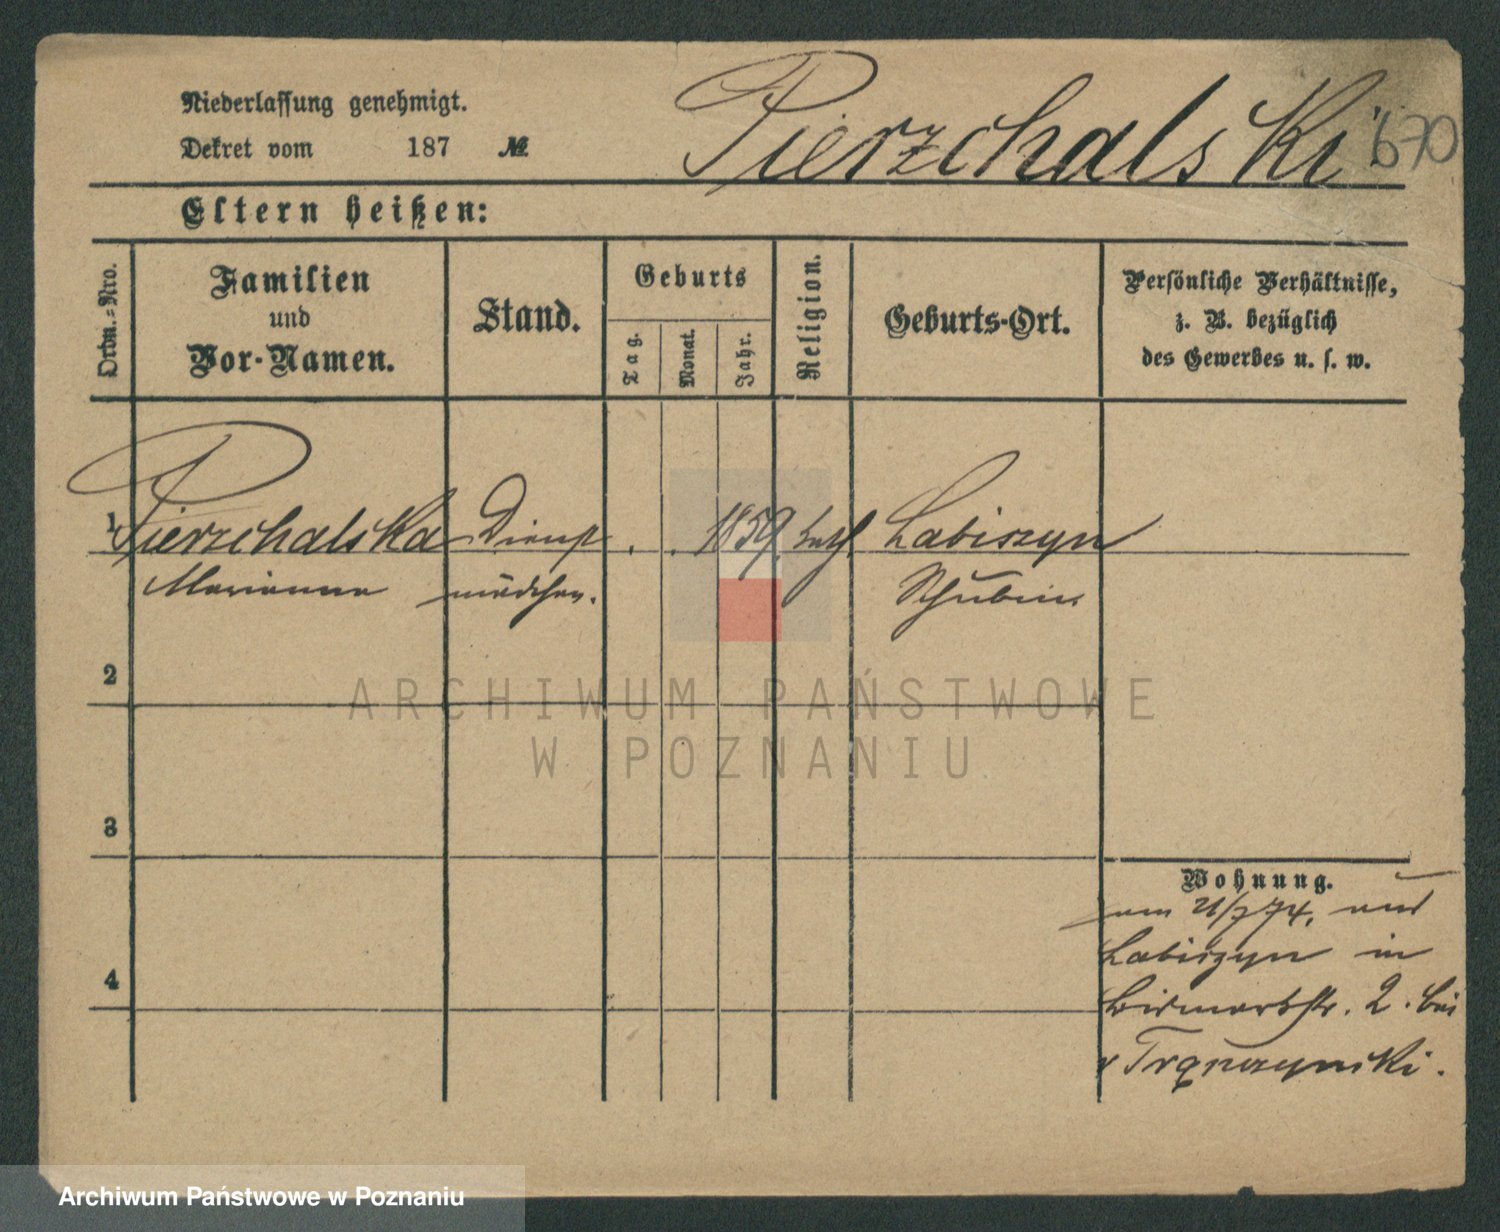 Niederlassung genehmigt.
Dekret vom 187 №
Pierzchalski
670
Eltern heißen:
Ordn.=Nro.
Familien
und
Vor-Namen.
Stand.
Geburts
Tag.
Monat.
Jahr.
Religion.
Geburts-Ort.
Persönliche Verhältnisse,
z. B. bezüglich
des Gewerbes u. s. w.
1 Pierzchalska Dienst . . 1859. kath Labiszyn
Marianna mädchen. Schubin
2
3
4
Wohnung.
vom 21/7 74. aus
Labiszyn in
Bismarckstr. 2. bei
v Trąmczynski.
ARCHIWUM PAŃSTWOWE
W POZNANIU
Archiwum Państwowe w Poznaniu